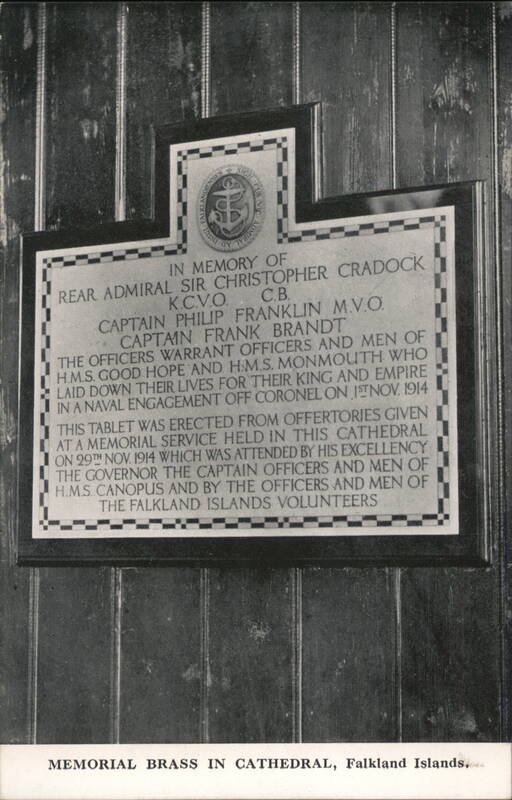 IN MEMORY OF
REAR ADMIRAL SIR CHRISTOPHER CRADOCK
K.C.V.O. C.B.
CAPTAIN PHILIP FRANKLIN M.V.O.
CAPTAIN FRANK BRANDT
THE OFFICERS WARRANT OFFICERS AND MEN OF
H.M.S. GOOD HOPE AND H.M.S. MONMOUTH WHO
LAID DOWN THEIR LIVES FOR THEIR KING AND EMPIRE
IN A NAVAL ENGAGEMENT OFF CORONEL ON 1ST NOV. 1914
THIS TABLET WAS ERECTED FROM OFFERTORIES GIVEN
AT A MEMORIAL SERVICE HELD IN THIS CATHEDRAL
ON 29TH NOV. 1914 WHICH WAS ATTENDED BY HIS EXCELLENCY
THE GOVERNOR THE CAPTAIN OFFICERS AND MEN OF
H.M.S. CANOPUS AND BY THE OFFICERS AND MEN OF
THE FALKLAND ISLANDS VOLUNTEERS
MEMORIAL BRASS IN CATHEDRAL, Falkland Islands.